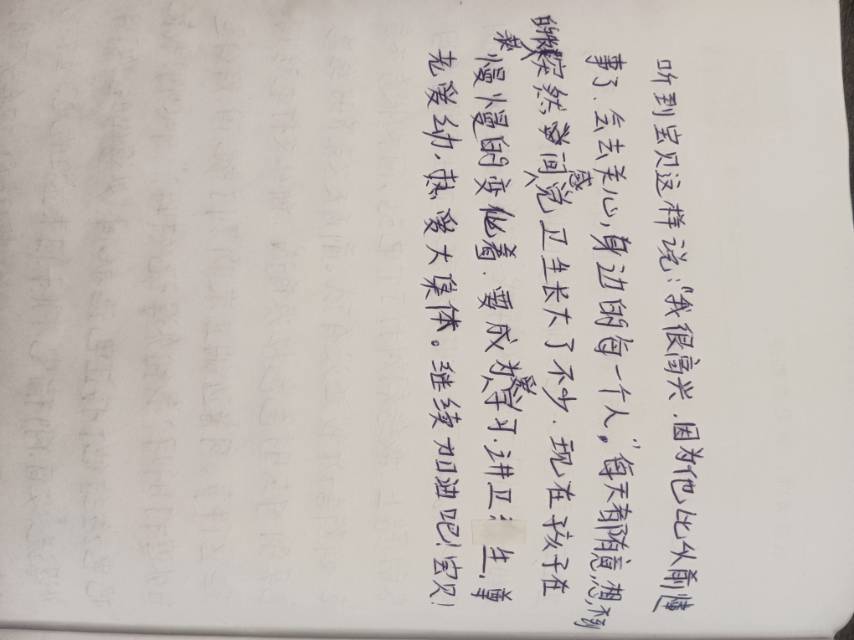 听到宝贝这样说：“我很高兴，因为他比从前懂
事了，会去关心，身边的每一个人，”每天都随意，想不到
的突然间感觉卫生长大了不少，现在孩子在
慢慢的变化着，要成为爱学习，讲卫生，尊
老爱幼，热爱大集体。继续加油吧！宝贝！